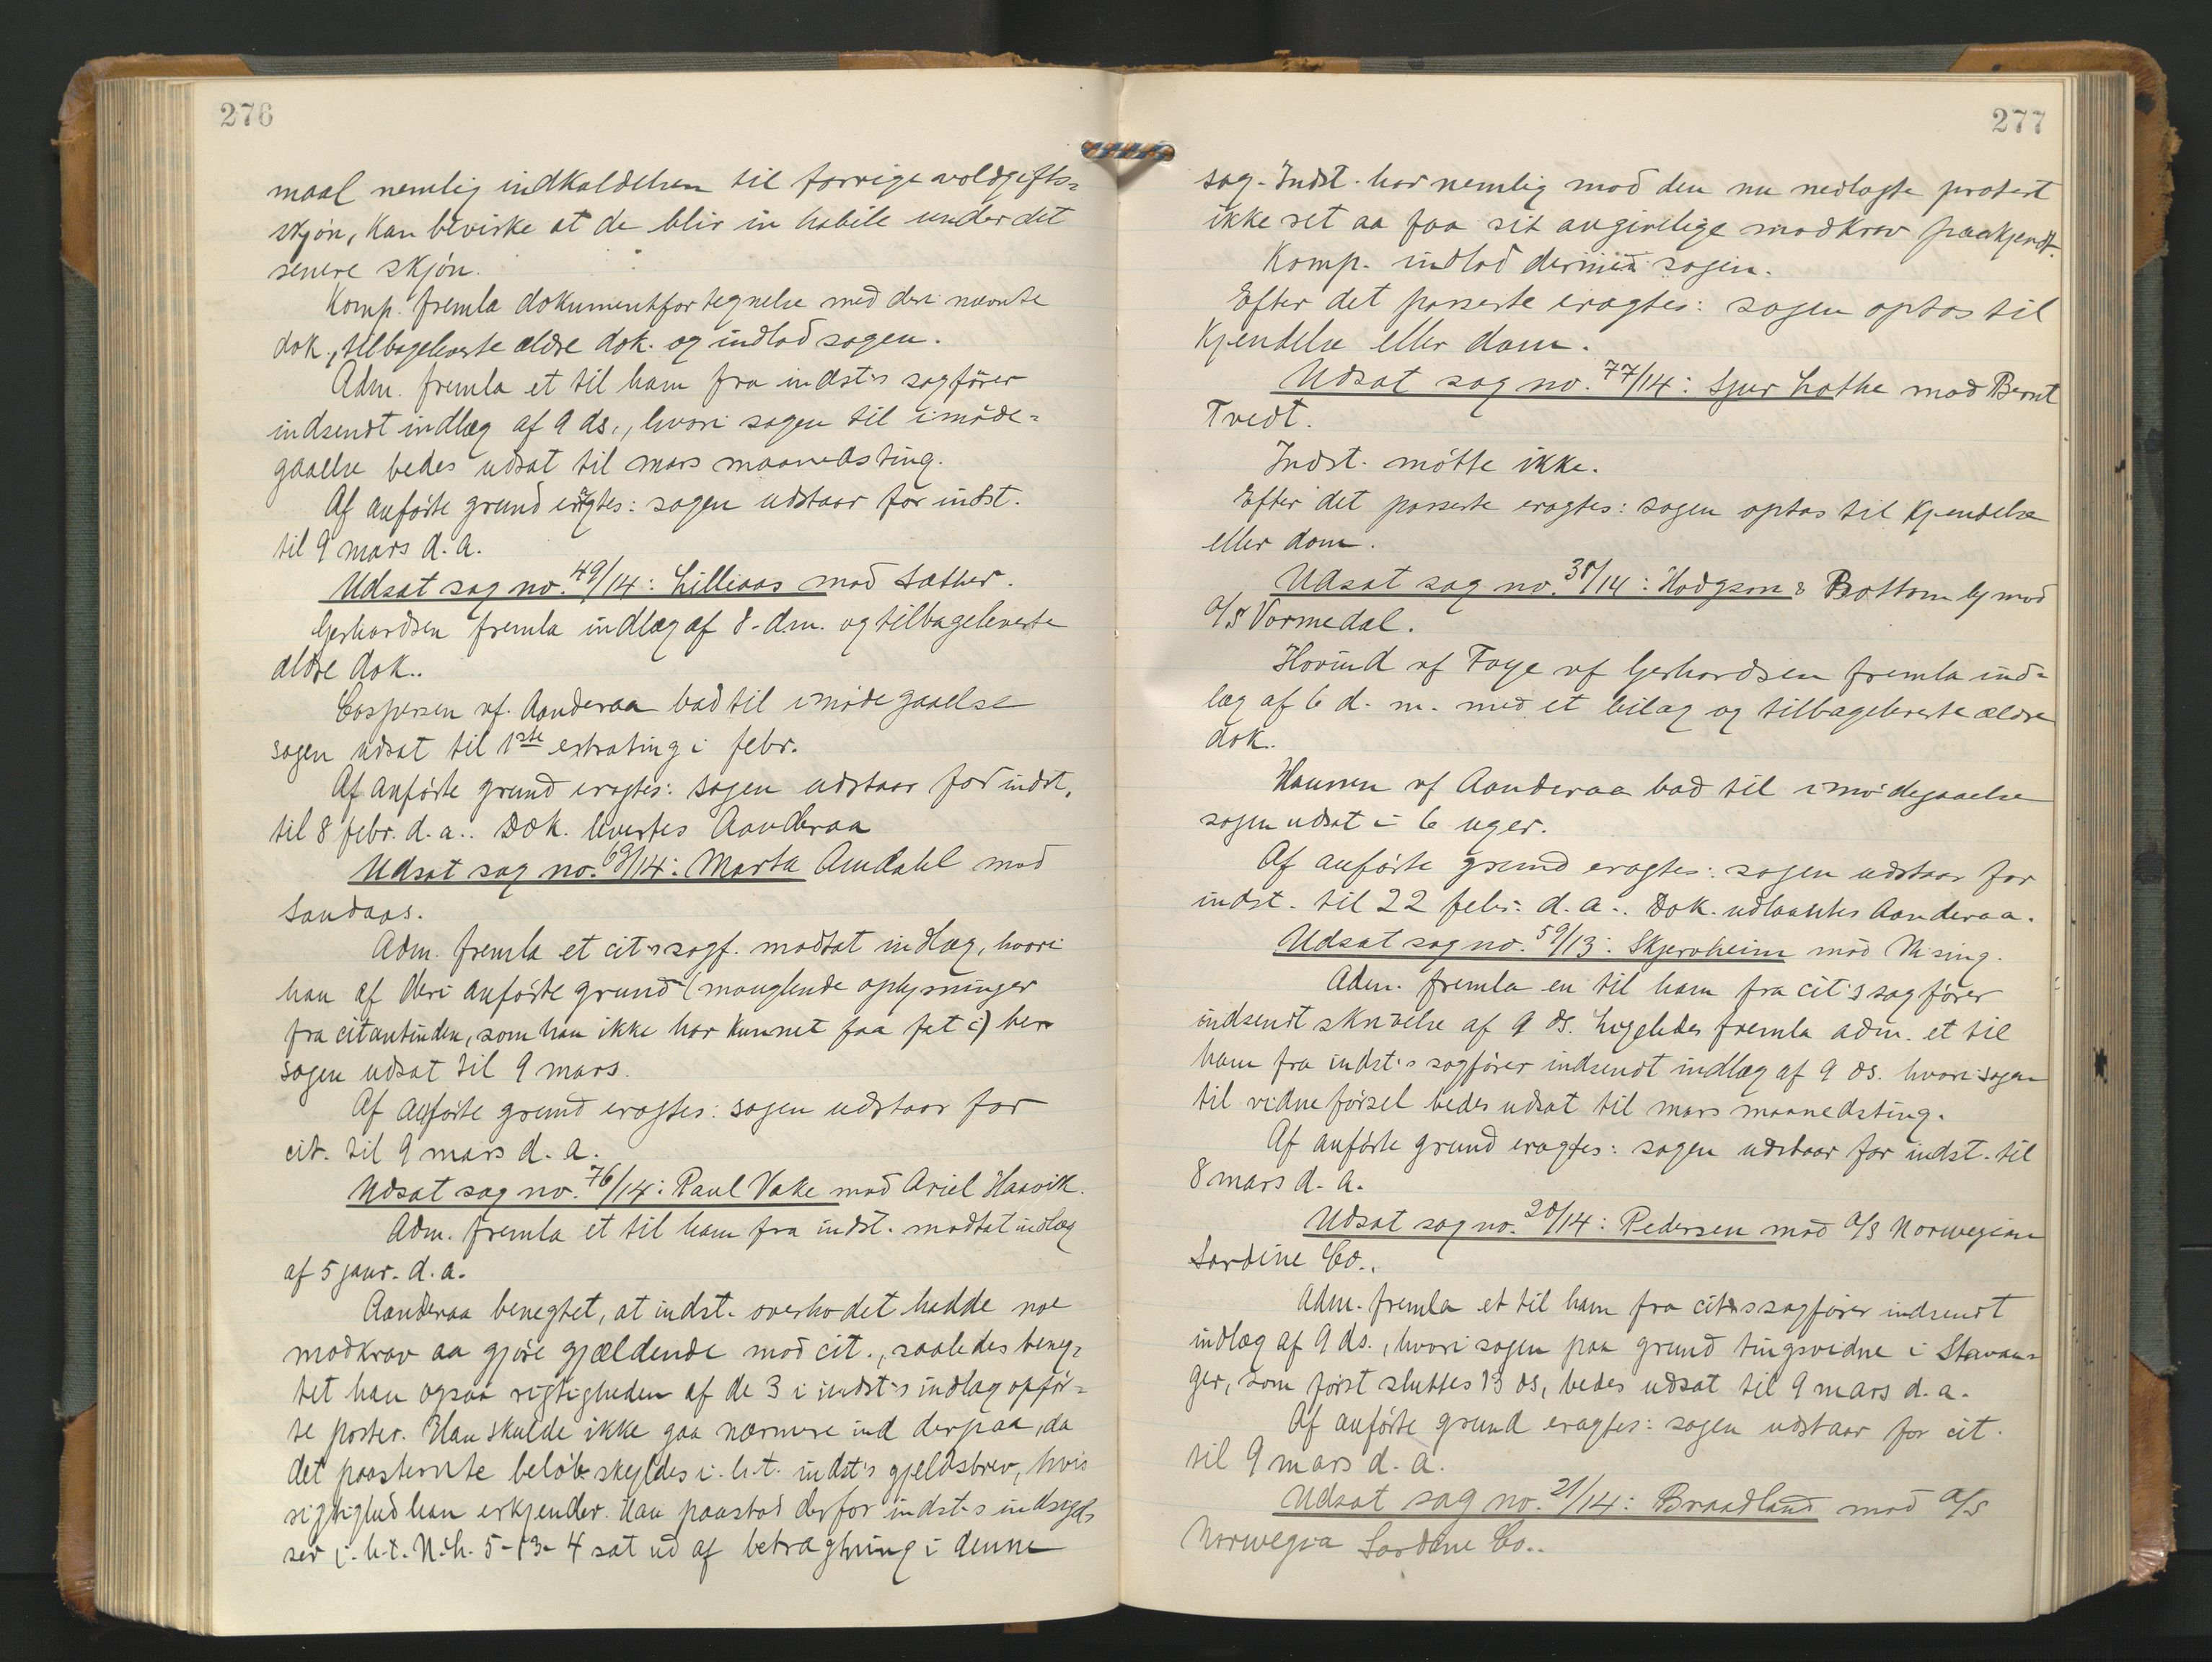 276
maal nemlig indkaldelsen til forrige voldgifts=
skjön, kan bevirke at de blir in habile under det
senere skjön.
Komp. fremla dokumentfortegnelse med deri nævnte
dok., tilbageleverte ældre dok. og indlod sagen.
Adm. fremla et til ham fra indst's sagförer
indsendt indlæg af 9 ds., hvori sagen til imöde=
gaaelse bedes udsat til mars maanedsting.
Af anförte grund eragtes: sagen udstaar for indst.
til 9 mars d. a.
Udsat sag no. 49/14: Lilliaas mod Sæther.
Gerhardsen fremla indlæg af 8. dm. og tilbageleverte
ældre dok..
Caspersen vf. Aanderaa bad til imödegaaelse
sagen udsat til 1ste extrating i febr.
Af anförte grund eragtes: sagen udstaar for indst.
til 8 febr. d. a.. Dok. levertes Aanderaa
Udsat sag no. 63/14: Marta Amdahl mod
Sandaas.
Adm. fremla et cit's sagf. modtat indlæg, hvori
han af deri anförte grund (manglende oplysninger
fra citantinden, som han ikke har kunnet faa fat i) ber
sagen udsat til 9 mars.
Af anförte grund eragtes: sagen udstaar for
cit. til 9 mars d. a.
Udsat sag no. 76/14: Paul Vake mod Ariel Haavik.
Adm. fremla et til ham fra indst. modtat indlæg
af 5 janr. d. a.
Aanderaa benegtet, at indst. overhodet hadde noe
modkrav aa gjöre gjældende mod cit., saaledes beneg=
tet han ogsaa rigtigheden af de 3 i indst's indlæg opför=
te poster. Han skulde ikke gaa nærmere ind derpaa, da
det paastevnte belöb skyldes i. h. t. indst's gjeldsbrev, hvis
rigtighed han erkjender. Han paastod derfor indst's indsigel
ser i. h. t. N. L. 5-13-4 sat ud af betragtning i denne
277
sag. Indst. har nemlig mod den nu nedlagte protest
ikke ret aa faa sit angivelige modkrav paakjendt.
Komp. indlod dermed sagen.
Efter det passerte eragtes: sagen optas til
Kjendelse eller dom.
Udsat sag no. 77/14: Sjur Lothe mod Bernt
Tvedt.
Indst. mötte ikke.
Efter det passerte eragtes: sagen optas til Kjendelse
eller dom.
Udsat sag no. 38/14: Hodgson & Bottomley mod
a/s Vormedal.
Hovind vf Faye vf Gerhardsen fremla ind=
læg af 6 d. m. med et bilag og tilbageleverte ældre
dok.
Hansen vf Aanderaa bad til imödegaaelse
sagen udsat i 6 uger.
Af anförte grund eragtes: sagen udstaar for
indst. til 22 febr. d. a.. Dok. udlaantes Aanderaa.
Udsat sag no. 59/13: Skjerveheim mod Nising.
Adm. fremla en til ham fra cit's sagförer
indsendt skrivelse af 9 ds. Ligeledes fremla adm. et til
ham fra indst's sagförer indsendt indlæg af 9 ds. hvori sagen
til vidneförsel bedes udsat til mars maanedsting.
Af anförte grund eragtes: sagen udstaar for indst. til
8 mars d. a.
Udsat sag no. 20/14: Pedersen mod a/s Norwegian
Sardine Co..
Adm. fremla et til ham fra cit's sagförer indsendt
indlæg af 9 ds., hvori sagen paa grund tingsvidne i Stavan=
ger, som först sluttes 13 ds, bedes udsat til 9 mars d. a.
Af anförte grund eragtes: sagen udstaar for cit.
til 9 mars d. a.
Udsat sag no. 21/14: Braadland mod a/s
Norwegia Sardine Co..